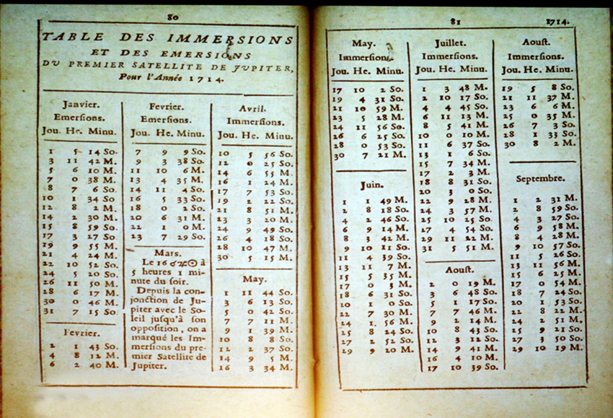 80
TABLE DES IMMERSIONS
ET DES EMERSIONS
DU PREMIER SATELLITE DE JUPITER,
Pour l'Année 1714.
Janvier.
Emersions.
Jou. He. Minu.
1 5 14 So.
3 11 42 M.
5 6 10 M.
7 0 38 M.
8 7 6 So.
10 1 34 So.
12 8 2 M.
14 2 30 M.
15 8 59 So.
17 3 27 So.
19 9 55 M.
21 4 24 M.
22 10 52 So.
24 5 20 So.
26 11 50 M.
28 6 17 M.
30 0 46 M.
31 7 15 So.
Fevrier.
2 1 43 So.
4 8 12 M.
6 2 40 M.
Fevrier.
Emersions.
Jou. He. Minu.
7 9 9 So.
9 3 38 So.
11 10 6 M.
13 4 35 M.
14 11 4 So.
16 5 33 So.
18 0 2 So.
20 6 31 M.
22 1 0 M.
23 7 29 So.
Mars.
Le 16 ☌ ♃ ☉ à
5 heures 1 mi-
nute du soir.
Depuis la con-
jonction de Ju-
piter avec le So-
leil jusqu'à son
opposition, on a
marqué les Im-
mersions du pre-
mier Satellite de
Jupiter.
Avril.
Immersions.
Jou. He. Minu.
10 5 56 So.
12 0 25 So.
14 6 55 M.
16 1 24 M.
17 7 53 So.
19 2 22 So.
21 8 51 M.
23 3 20 M.
24 9 49 So.
26 4 18 So.
28 10 47 M.
30 5 15 M.
May.
1 11 44 So.
3 6 13 So.
5 0 42 So.
7 7 11 M.
9 1 39 M.
10 8 8 So.
12 2 37 So.
14 9 5 M.
16 3 34 M.
81 1714.
May.
Immersions.
Jou. He. Minu.
17 10 2 So.
19 4 31 So.
21 10 59 M.
23 5 28 M.
24 11 56 So.
26 6 25 So.
28 0 53 So.
30 7 21 M.
Juin.
1 1 49 M.
2 8 18 So.
4 2 46 So.
6 9 14 M.
8 3 42 M.
9 10 11 So.
11 4 39 So.
13 11 7 M.
15 5 35 M.
17 0 5 M.
18 6 31 So.
20 1 0 So.
22 7 30 M.
24 1 56 M.
25 8 24 So.
27 2 52 So.
29 9 20 M.
Juillet.
Immersions.
Jou. He. Minu.
1 3 48 M.
2 10 17 So.
4 4 45 So.
6 11 13 M.
8 5 41 M.
10 0 10 M.
11 6 37 So.
13 1 6 So.
15 7 34 M.
17 2 3 M.
18 8 31 So.
20 3 0 So.
22 9 28 M.
24 3 57 M.
25 10 25 So.
27 4 54 So.
29 11 22 M.
31 5 51 M.
Aoust.
2 0 19 M.
3 6 48 So.
5 1 17 So.
7 7 46 M.
9 2 14 M.
10 8 43 So.
12 3 12 So.
14 9 41 M.
16 4 10 M.
17 10 39 So.
Aoust.
Immersions.
Jou. He. Minu.
19 5 8 So.
21 11 37 M.
23 6 6 M.
25 0 35 M.
26 7 3 So.
28 1 33 So.
30 8 2 M.
Septembre.
1 2 31 M.
2 8 59 So.
4 3 27 So.
6 9 58 M.
8 4 28 M.
9 10 57 So.
11 5 26 So.
13 11 56 M.
15 6 25 M.
17 0 54 M.
18 7 24 So.
20 1 53 So.
22 8 22 M.
24 2 51 M.
25 9 21 So.
27 3 50 So.
29 10 19 M.